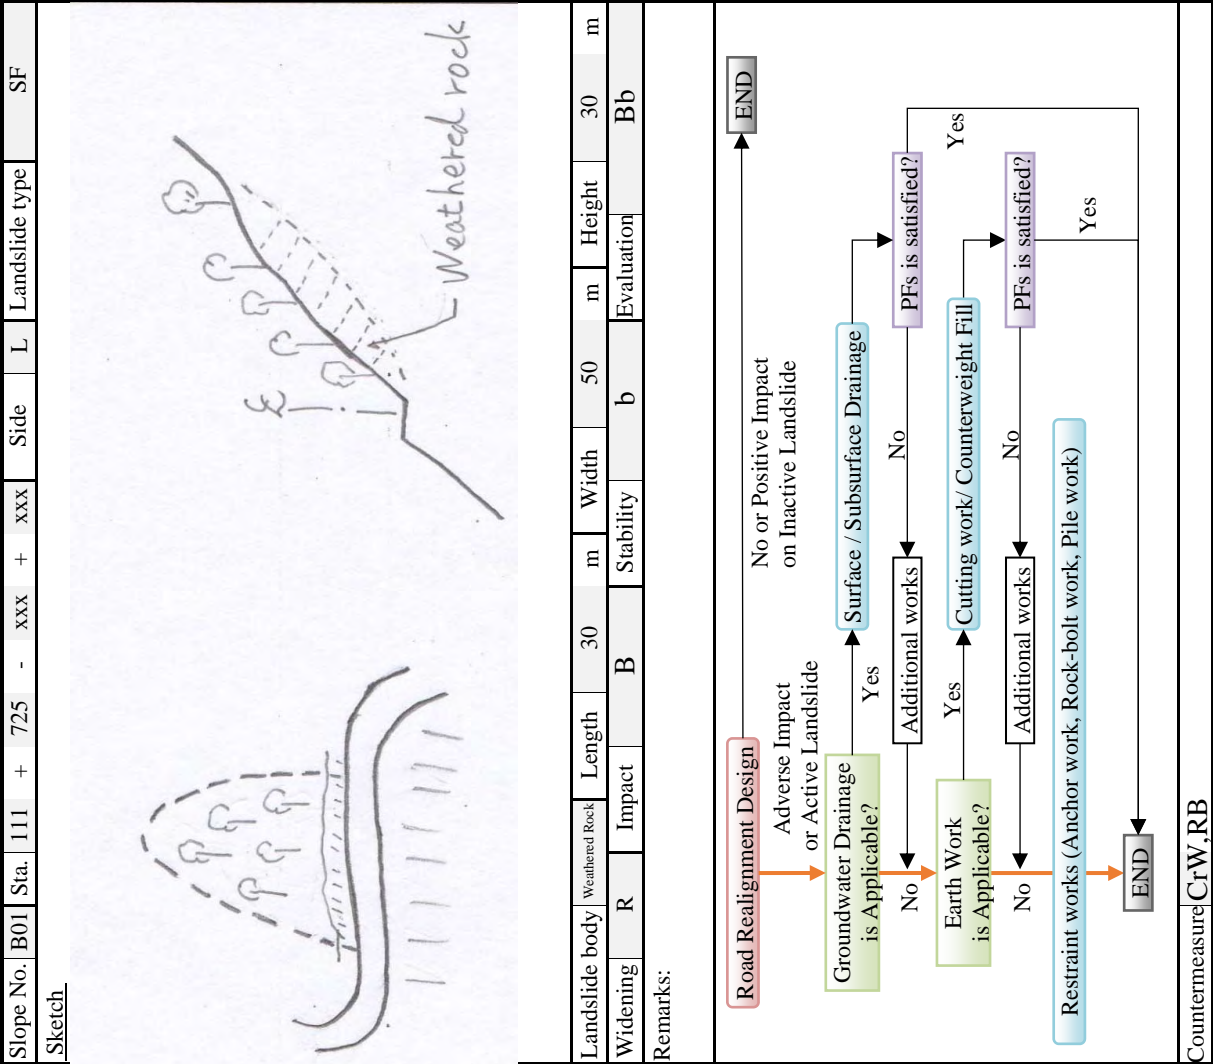 Slope No. B01 Sta. 111 + 725 - xxx + xxx Side L Landslide type SF
Sketch
Weathered rock
Landslide body Weathered Rock Length 30 m Width 50 m Height 30 m
Widening R Impact B Stability b Evaluation Bb
Remarks:
Road Realignment Design
No or Positive Impact
on Inactive Landslide
END
Adverse Impact
or Active Landslide
Groundwater Drainage
is Applicable?
Yes
Surface / Subsurface Drainage
PFs is satisfied?
No
Additional works
Yes
No
Earth Work
is Applicable?
Yes
Cutting work/ Counterweight Fill
PFs is satisfied?
No
Additional works
Yes
No
Restraint works (Anchor work, Rock-bolt work, Pile work)
END
Countermeasure CrW,RB